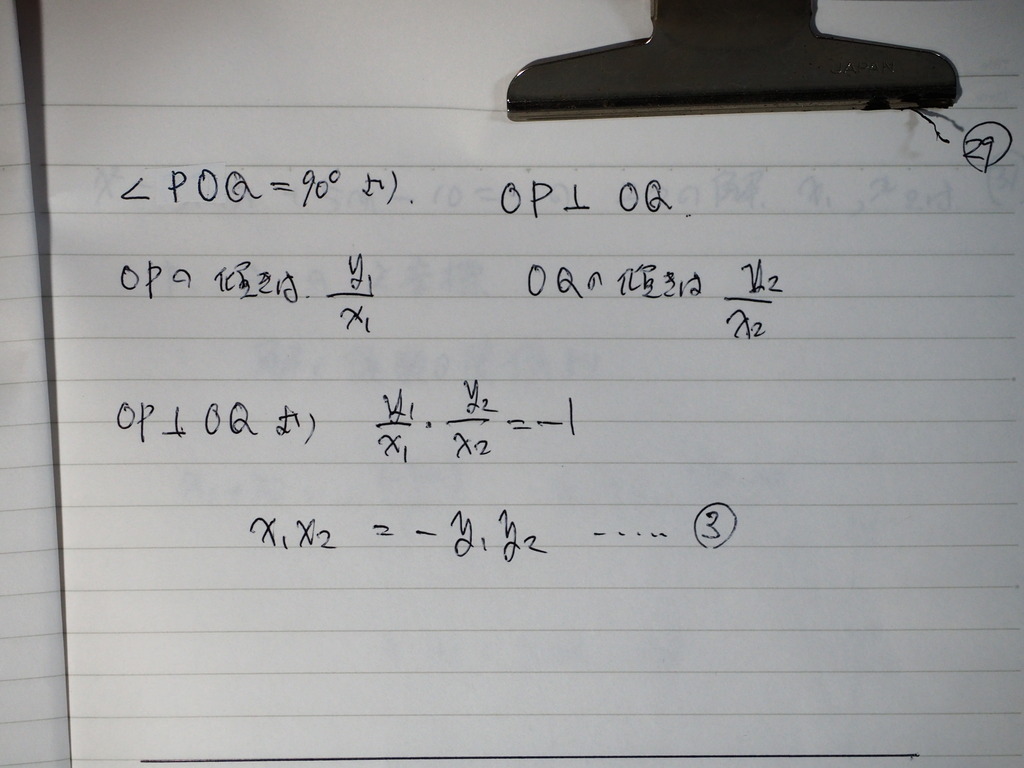 JAPAN
㉙
∠POQ = 90° より. OP⊥OQ.
OPの傾きは. y₁/x₁ OQの傾きは y₂/x₂
OP⊥OQ より y₁/x₁ · y₂/x₂ = -1
x₁x₂ = -y₁y₂ ..... ③